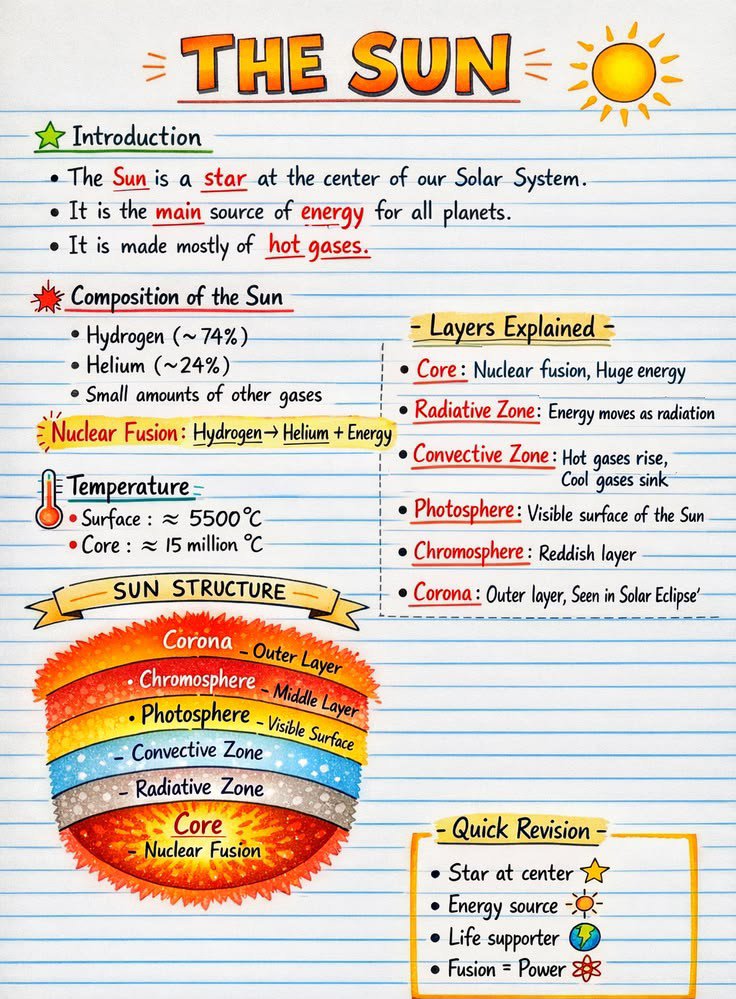 THE SUN
Introduction
• The Sun is a star at the center of our Solar System.
• It is the main source of energy for all planets.
• It is made mostly of hot gases.
Composition of the Sun
• Hydrogen (~74%)
• Helium (~24%)
• Small amounts of other gases
Nuclear Fusion: Hydrogen → Helium + Energy
Temperature
• Surface : ≈ 5500 °C
• Core : ≈ 15 million °C
- Layers Explained -
• Core : Nuclear fusion, Huge energy
• Radiative Zone: Energy moves as radiation
• Convective Zone : Hot gases rise,
Cool gases sink
• Photosphere: Visible surface of the Sun
• Chromosphere : Reddish layer
• Corona : Outer layer, Seen in Solar Eclipse'
SUN STRUCTURE
Corona - Outer Layer
• Chromosphere - Middle Layer
• Photosphere - Visible Surface
- Convective Zone
- Radiative Zone
Core
- Nuclear Fusion
- Quick Revision -
• Star at center
• Energy source
• Life supporter
• Fusion = Power